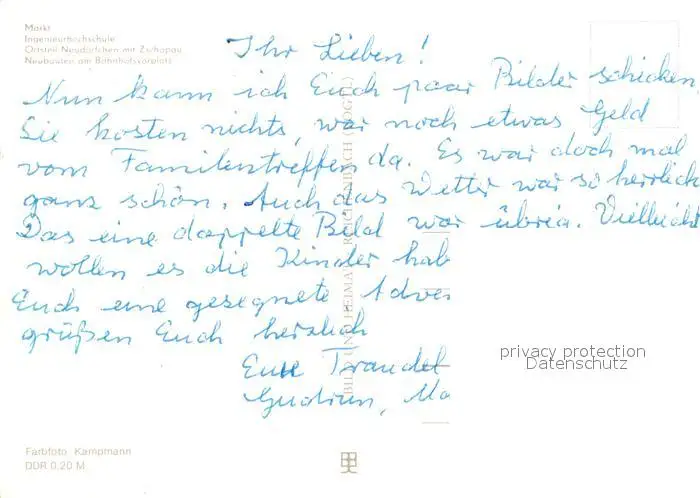 Markt
Ingenieurhochschule
Ortsteil Neudörfchen mit Zschopau
Neubauten am Bahnhofsvorplatz
Ihr Lieben!
Nun kann ich Euch paar Bilder schicken,
Sie kosten nichts, war noch etwas Geld
vom Familientreffen da. Es war doch mal
ganz schön. Auch das Wetter war so herrlich
Das eine doppelte Bild war übrig. Vielleicht
wollen es die Kinder hab
Euch eine gesegnete Adve
grüßen Euch herzlich
Eure Traudel
Gudrun, Ma
BILD UND HEIMAT REICHENBACH (VOGTL)
privacy protection
Datenschutz
Farbfoto Kampmann
DDR 0,20 M